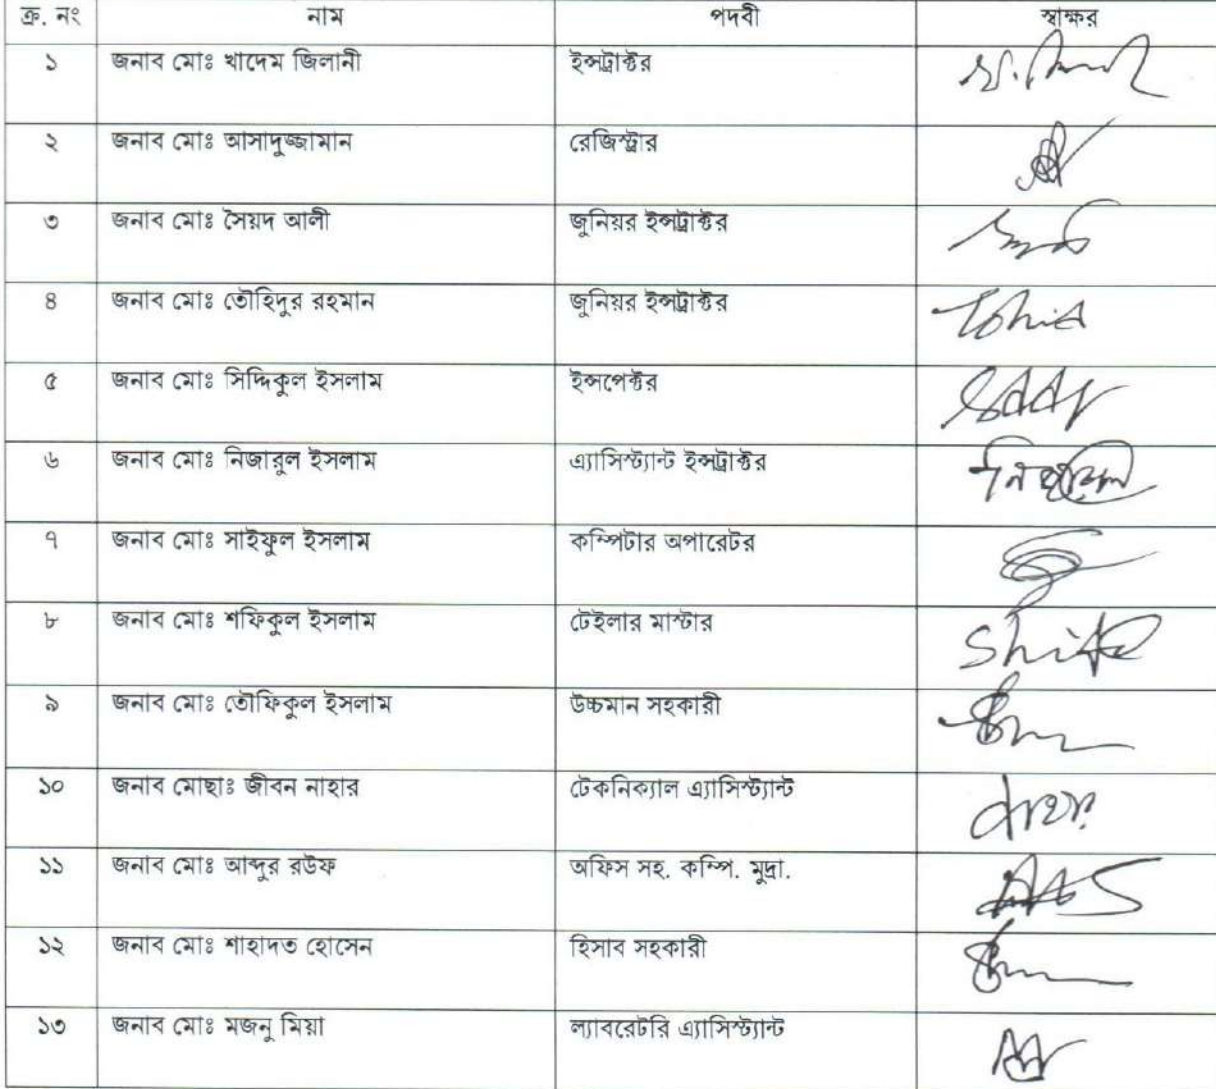 ক্র. নং নাম পদবী স্বাক্ষর
১ জনাব মোঃ খাদেম জিলানী ইন্সট্রাক্টর
২ জনাব মোঃ আসাদুজ্জামান রেজিস্ট্রার
৩ জনাব মোঃ সৈয়দ আলী জুনিয়র ইন্সট্রাক্টর
৪ জনাব মোঃ তৌহিদুর রহমান জুনিয়র ইন্সট্রাক্টর Tohid
৫ জনাব মোঃ সিদ্দিকুল ইসলাম ইন্সপেক্টর
৬ জনাব মোঃ নিজারুল ইসলাম এ্যাসিস্ট্যান্ট ইন্সট্রাক্টর
৭ জনাব মোঃ সাইফুল ইসলাম কম্পিটার অপারেটর
৮ জনাব মোঃ শফিকুল ইসলাম টেইলার মাস্টার
৯ জনাব মোঃ তৌফিকুল ইসলাম উচ্চমান সহকারী
১০ জনাব মোছাঃ জীবন নাহার টেকনিক্যাল এ্যাসিস্ট্যান্ট নাহার
১১ জনাব মোঃ আব্দুর রউফ অফিস সহ. কম্পি. মুদ্রা.
১২ জনাব মোঃ শাহাদত হোসেন হিসাব সহকারী
১৩ জনাব মোঃ মজনু মিয়া ল্যাবরেটরি এ্যাসিস্ট্যান্ট